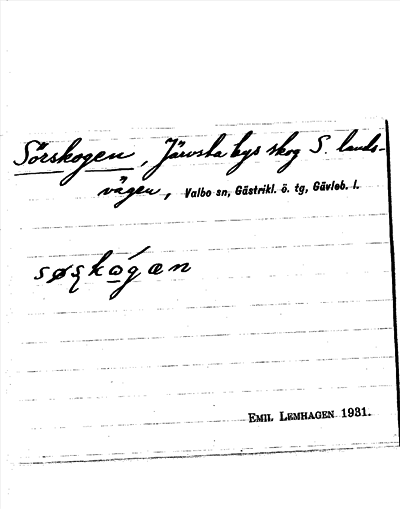 Sörskogen, Järvsta bys skog S. lands-
vägen, Valbo sn, Gästrikl. ö. tg, Gävleb. l.
søʂkɷ́gæn
EMIL LEMHAGEN 1931.